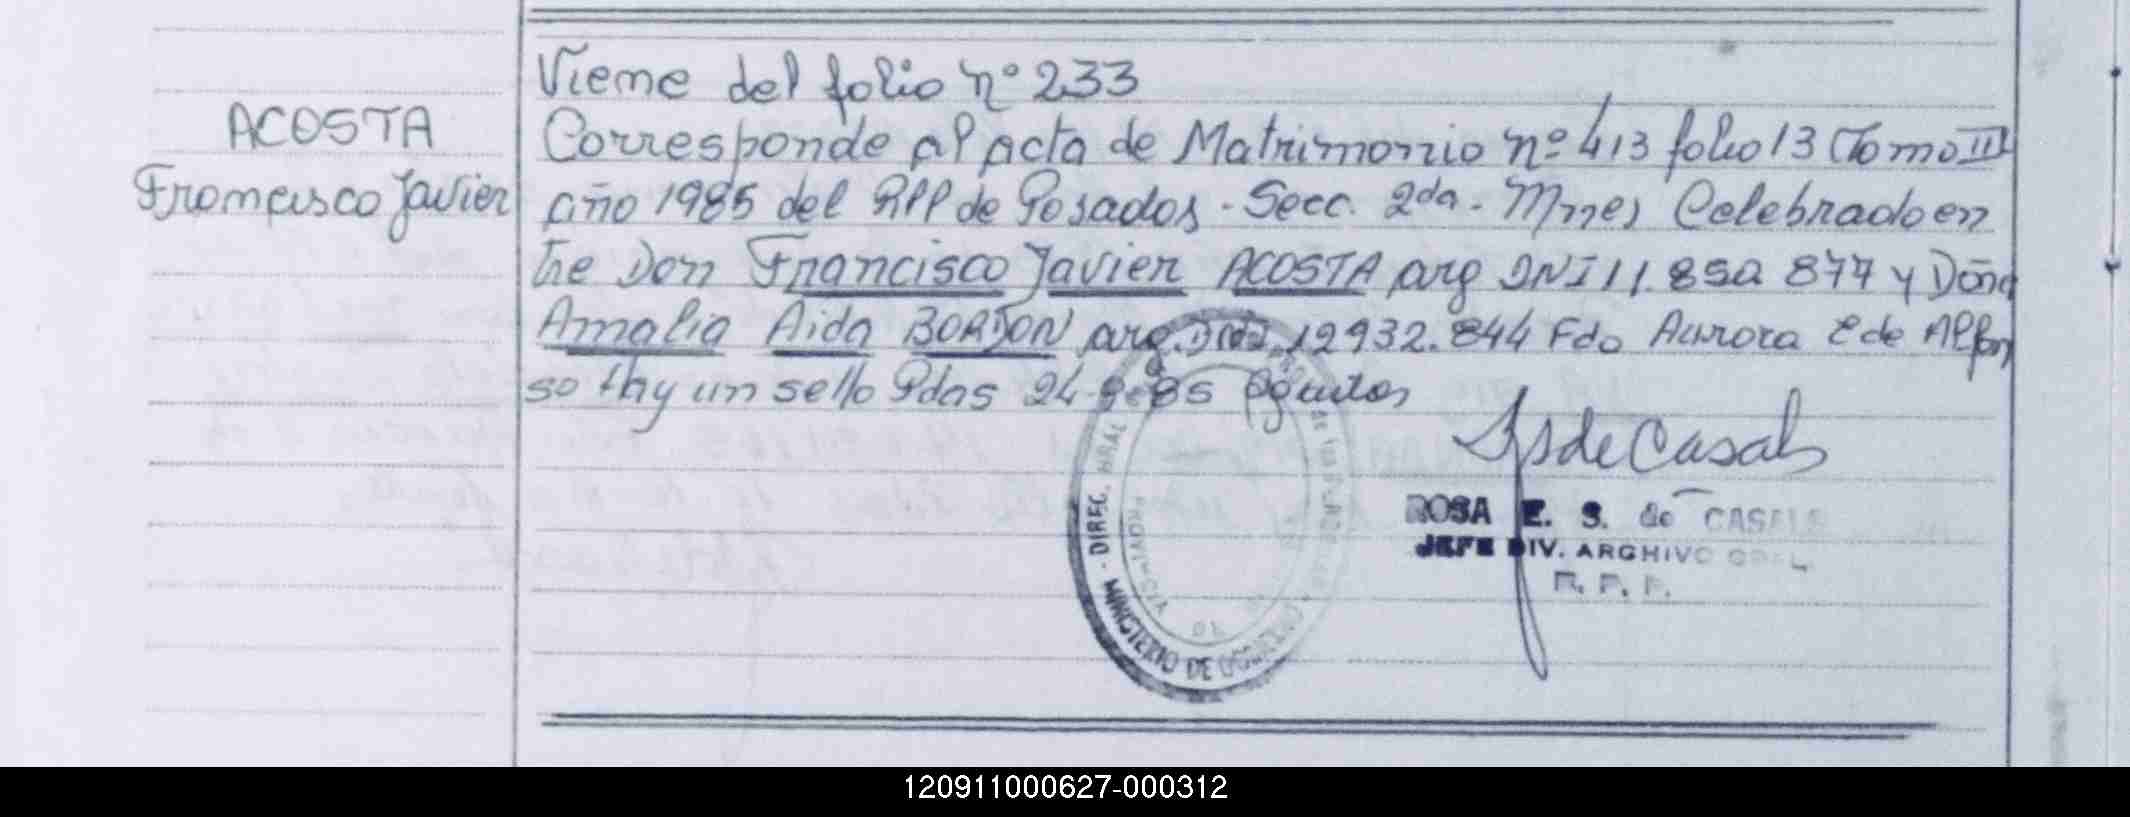 Viene del folio nº 233
ACOSTA
Francisco Javier
Corresponde al acta de Matrimonio nº 413 folio 13 Tomo III
año 1985 del RPP de Posadas - Secc. 2da - Mnes Celebrado en
tre Don Francisco Javier ACOSTA arg DNI 11.852 877 y Doña
Amalia Aida BORDON arg. DNI. 12932.844 Fdo Aurora E de Alfon
so Hay un sello Pdas 24-9-85
de Casals
ROSA E. S. de CASALS
JEFE DIV. ARCHIVO GRAL.
R. P. P.
MINISTERIO DE GOBIERNO - DIREC. GRAL
PROVINCIA DE
120911000627-000312